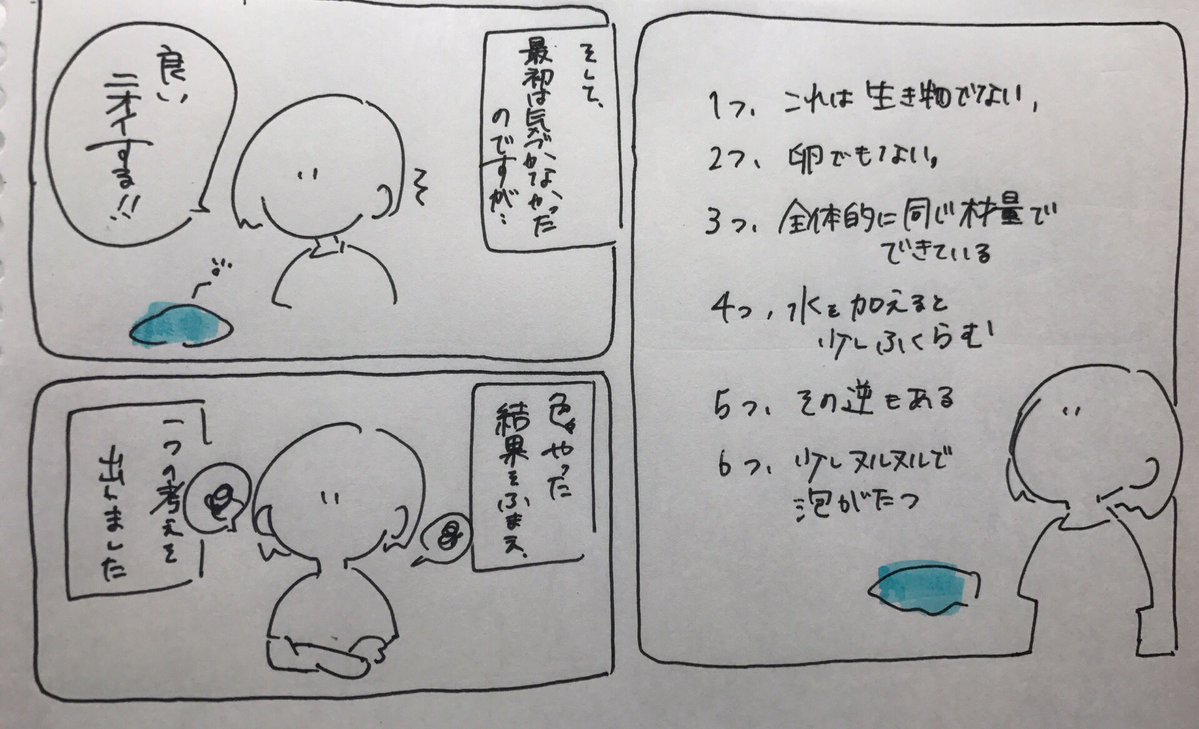 1つ、これは生き物でない、
2つ、卵でもない。
3つ、全体的に同じ材量で
できている
4つ、水を加えると
少しふくらむ
5つ、その逆もある
6つ、少しヌルヌルで
泡がたつ
そして、
最初は気づかなかった
のですが…
良い
ニオイする!!
色々やった
結果をふまえ、
一つの考えを
出しました